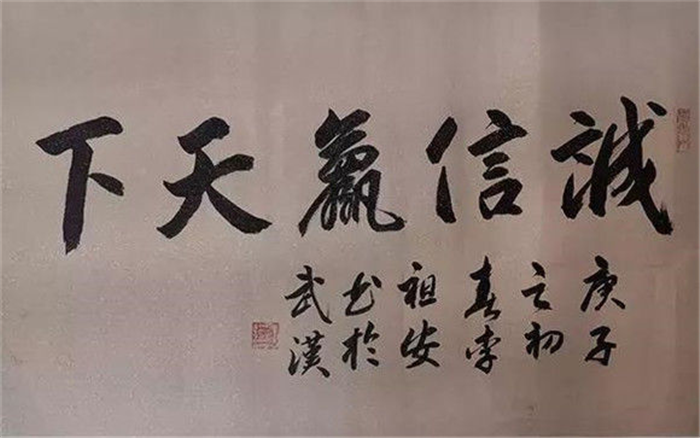 誠信贏天下
庚子
之初
春李
祖安
书於
武漢